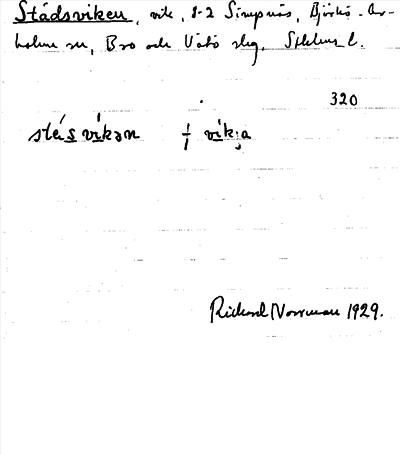 Städsviken, vik, 1-2 Simpnäs, Björkö-Ar-
holma sn, Bro och Vätö slg, Sthlms l.
320
stésvikan ⸓ vik:a
Rickard Norrman 1929.